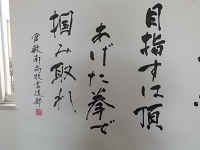 目指すは頂
あげた拳で
掴み取れ
倉敷南高校書道部